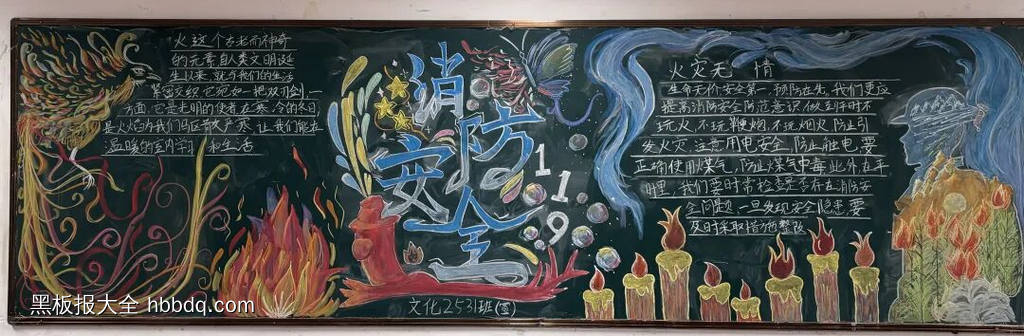 火这个古老而神奇
的元素自人类文明诞
生以来,就与我们的生活
紧密交织它宛如一把双刃剑,一
方面,它是光明的使者在寒冷的冬日
是火焰为我们驱散严寒,让我们能在
温暖的室内学习和生活
消防
安全
119
火灾无情
生命无价安全第一,预防在先,我们更应
提高消防安全防范意识做到平时不
玩火,不玩鞭炮,不玩烟火防止引
发火灾,注意用电安全,防止触电,要
正确使用煤气,防止煤气中毒此外在平
时里,我们要时常检查是否存在消防安
全问题,一旦发现安全隐患,要
及时采取措施整改
文化2531班(宣)
黑板报大全 hbbdq.com